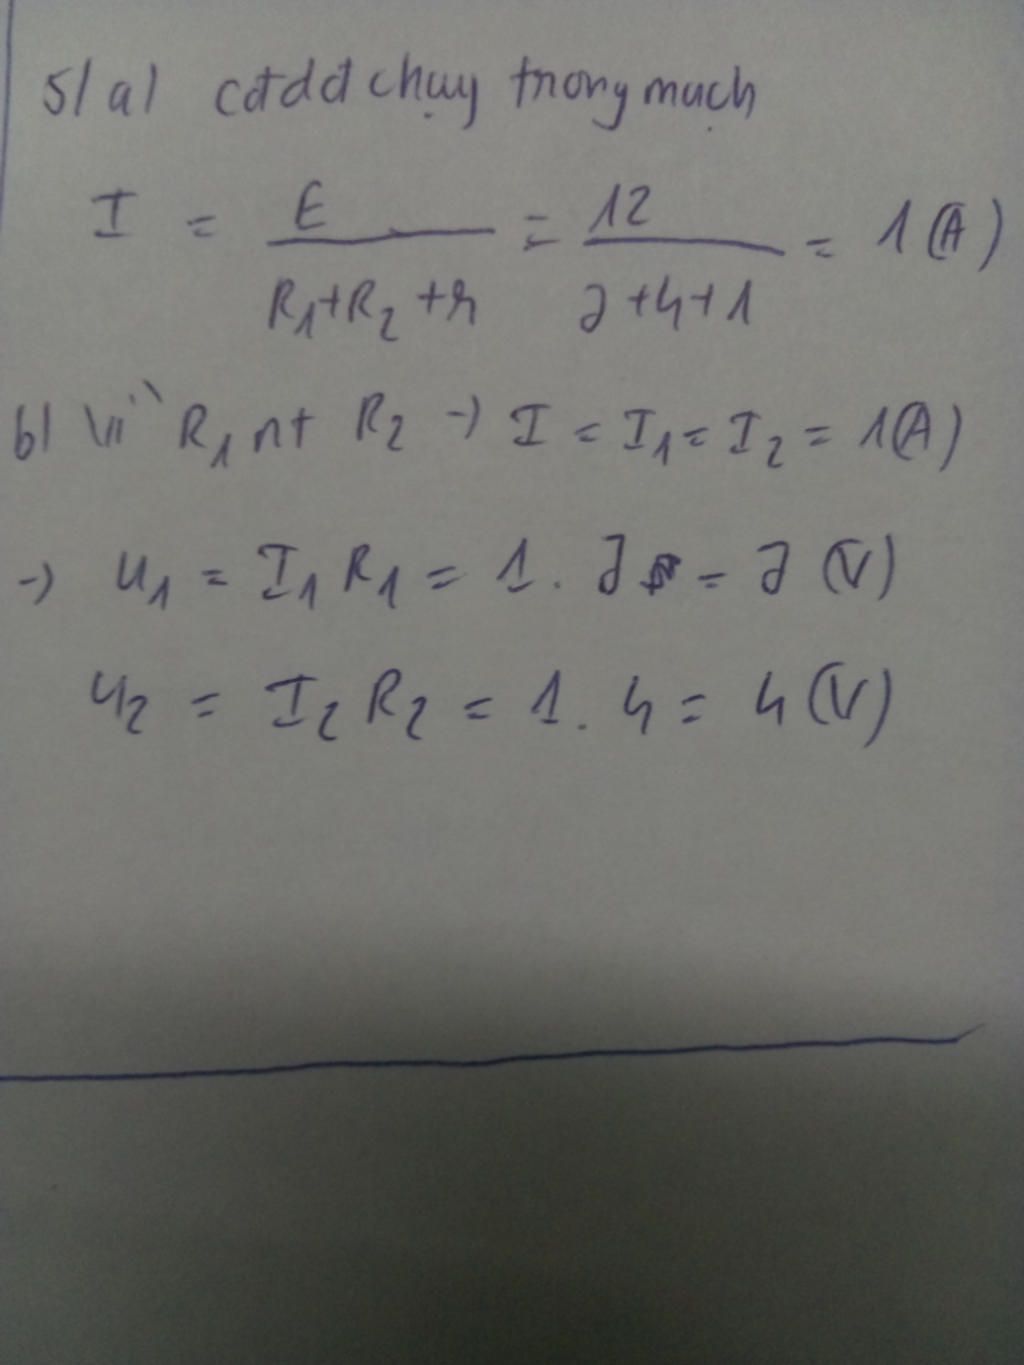 5/a/ cđdđ chạy trong mạch
I = E / (R₁+R₂+r) = 12 / (7+4+1) = 1 (A)
b/ Vì R₁ nt R₂ → I = I₁ = I₂ = 1(A)
→ U₁ = I₁ R₁ = 1 . 7 = 7 (V)
U₂ = I₂ R₂ = 1 . 4 = 4 (V)